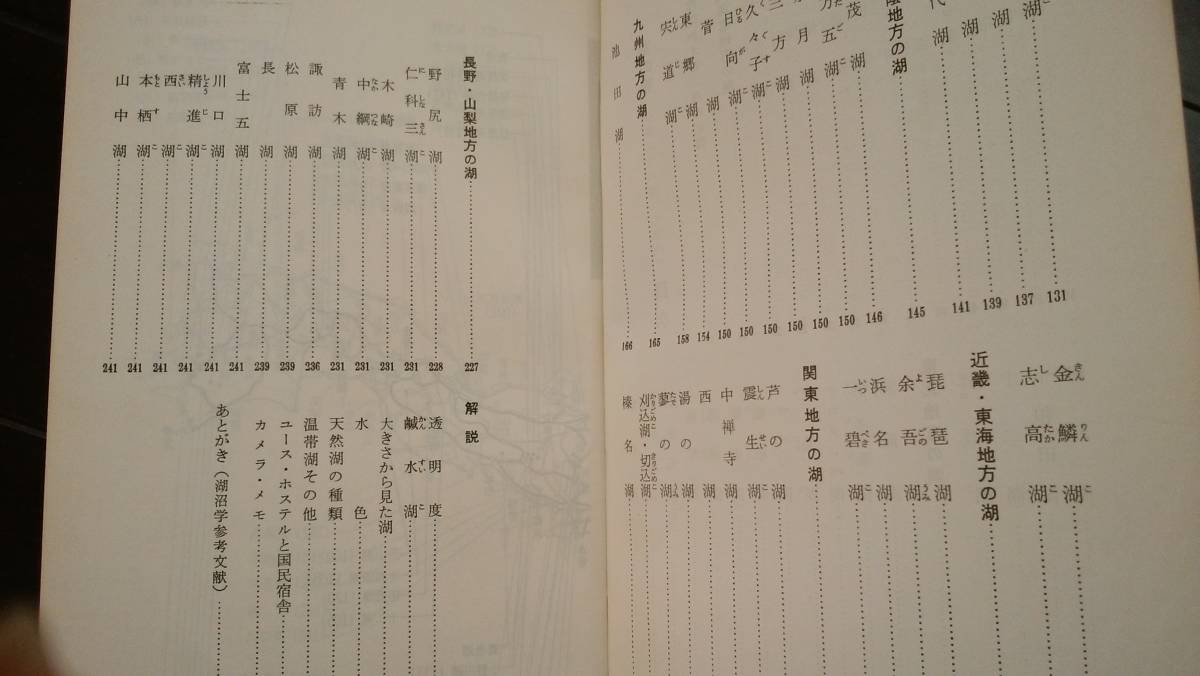 湖 131
湖 137
湖 139
代湖 141
陰地方の湖 145
茂湖 146
方五湖 150
月湖 150
三方湖 150
久々子湖 150
日向湖 150
菅湖 150
東郷湖 154
宍道湖 158
九州地方の湖 165
池田湖 166
金鱗湖
志高湖
近畿・東海地方の湖
琵琶湖
余吾湖
浜名湖
一碧湖
関東地方の湖
芦の湖
震生湖
中禅寺湖
西湖
湯の湖
蓼の湖
刈込湖・切込湖
榛名湖
長野・山梨地方の湖 227
野尻湖 228
仁科三湖 231
木崎湖 231
中綱湖 231
青木湖 231
諏訪湖 236
松原湖 239
長湖 239
富士五湖 241
川口湖 241
精進湖 241
西湖 241
本栖湖 241
山中湖 241
解説
透明度
鹹水湖
大きさから見た湖
水色
天然湖の種類
温帯湖その他
ユース・ホステルと国民宿舎
カメラ・メモ
あとがき(湖沼学参考文献)